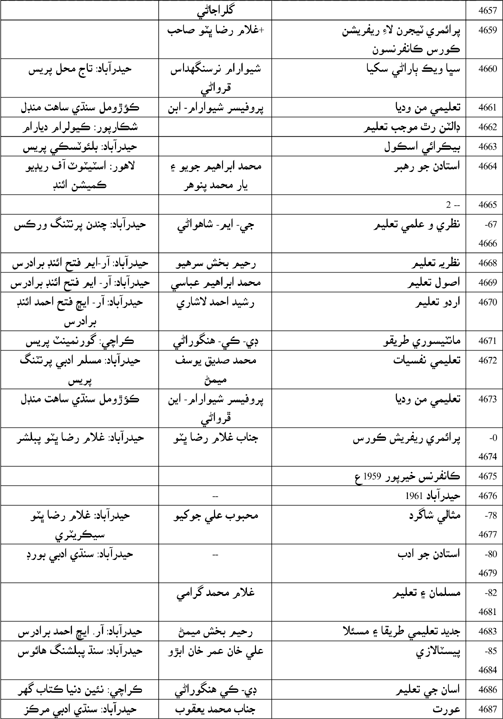 4657 گلراجاڻي
4659 پرائمري ٽيچرن لاءِ ريفريشن +غلام رضا ڀٽو صاحب
ڪورس ڪانفرنسون
4660 سڀا ويڪ ٻاراڻي سکيا شيوارام نرسنگهداس حيدرآباد: تاج محل پريس
قرواڻي
4661 تعليمي من وديا پروفيسر شيوارام- ابن ڪوڙومل سنڌي ساهت منڊل
4662 ڊالٽن رٿ موجب تعليم شڪارپور: ڪيولرام ديارام
4663 بيڪرائي اسڪول حيدرآباد: بلوئتسڪي پريس
4664 استادن جو رهبر محمد ابراهيم جويو ۽ لاهور: اسٽيٽوٽ آف ريڊيو
يار محمد پنوهر ڪميشن ائنڊ
4665 -- 2
-67 نظري و علمي تعليم جي- ايم- شاهواڻي حيدرآباد: چندن پرنٽنگ ورڪس
4666
4668 نظريہ تعليم رحيم بخش سرهيو حيدرآباد: آر-ايم فتح ائنڊ برادرس
4669 اصول تعليم محمد ابراهيم عباسي حيدرآباد: آر- ايم فتح ائنڊ برادرس
4670 اردو تعليم رشيد احمد لاشاري حيدرآباد: آر- ايڇ فتح احمد ائنڊ
برادرس
4671 مانٽيسوري طريقو ڊي- ڪي- هنڱوراڻي ڪراچي: گورنمينٽ پريس
4672 تعليمي نفسيات محمد صديق يوسف حيدرآباد: مسلم ادبي پرنٽنگ
ميمڻ پريس
4673 تعليمي من وديا پروفيسر شيوارام- اين ڪوڙومل سنڌي ساهت منڊل
ڦرواڻي
-0 پرائمري ريفريش ڪورس جناب غلام رضا ڀٽو حيدرآباد: غلام رضا ڀٽو پبلشر
4674
4675 ڪانفرنس خيرپور 1959ع
4676 حيدرآباد 1961 --
-78 مثالي شاگرد محبوب علي جوکيو حيدرآباد: غلام رضا ڀٽو
4677 سيڪريٽري
-80 استادن جو ادب -- حيدرآباد: سنڌي ادبي بورڊ
4679
-82 مسلمان ۽ تعليم غلام محمد گرامي
4681
4683 جديد تعليمي طريقا ۽ مسئلا رحيم بخش ميمڻ حيدرآباد: آر. ايڇ احمد برادرس
-85 پيسٽالازي علي خان عمر خان ابڙو حيدرآباد: سنڌ پبلشنگ هائوس
4684
4686 اسان جي تعليم ڊي- ڪي هنڱوراڻي ڪراچي: نئين دنيا ڪتاب گهر
4687 عورت جناب محمد يعقوب حيدرآباد: سنڌي ادبي مرڪز